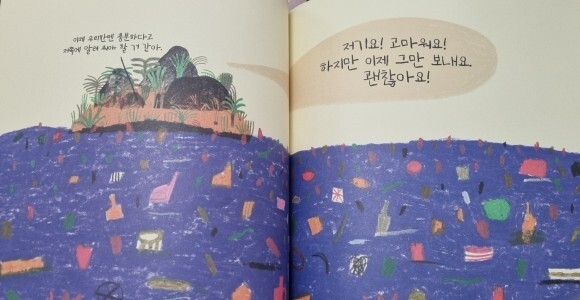 이제 우리한텐 충분하다고
저쪽에 알려 줘야 할 거 같아.
저기요! 고마워요!
하지만 이제 그만 보내요.
괜찮아요!